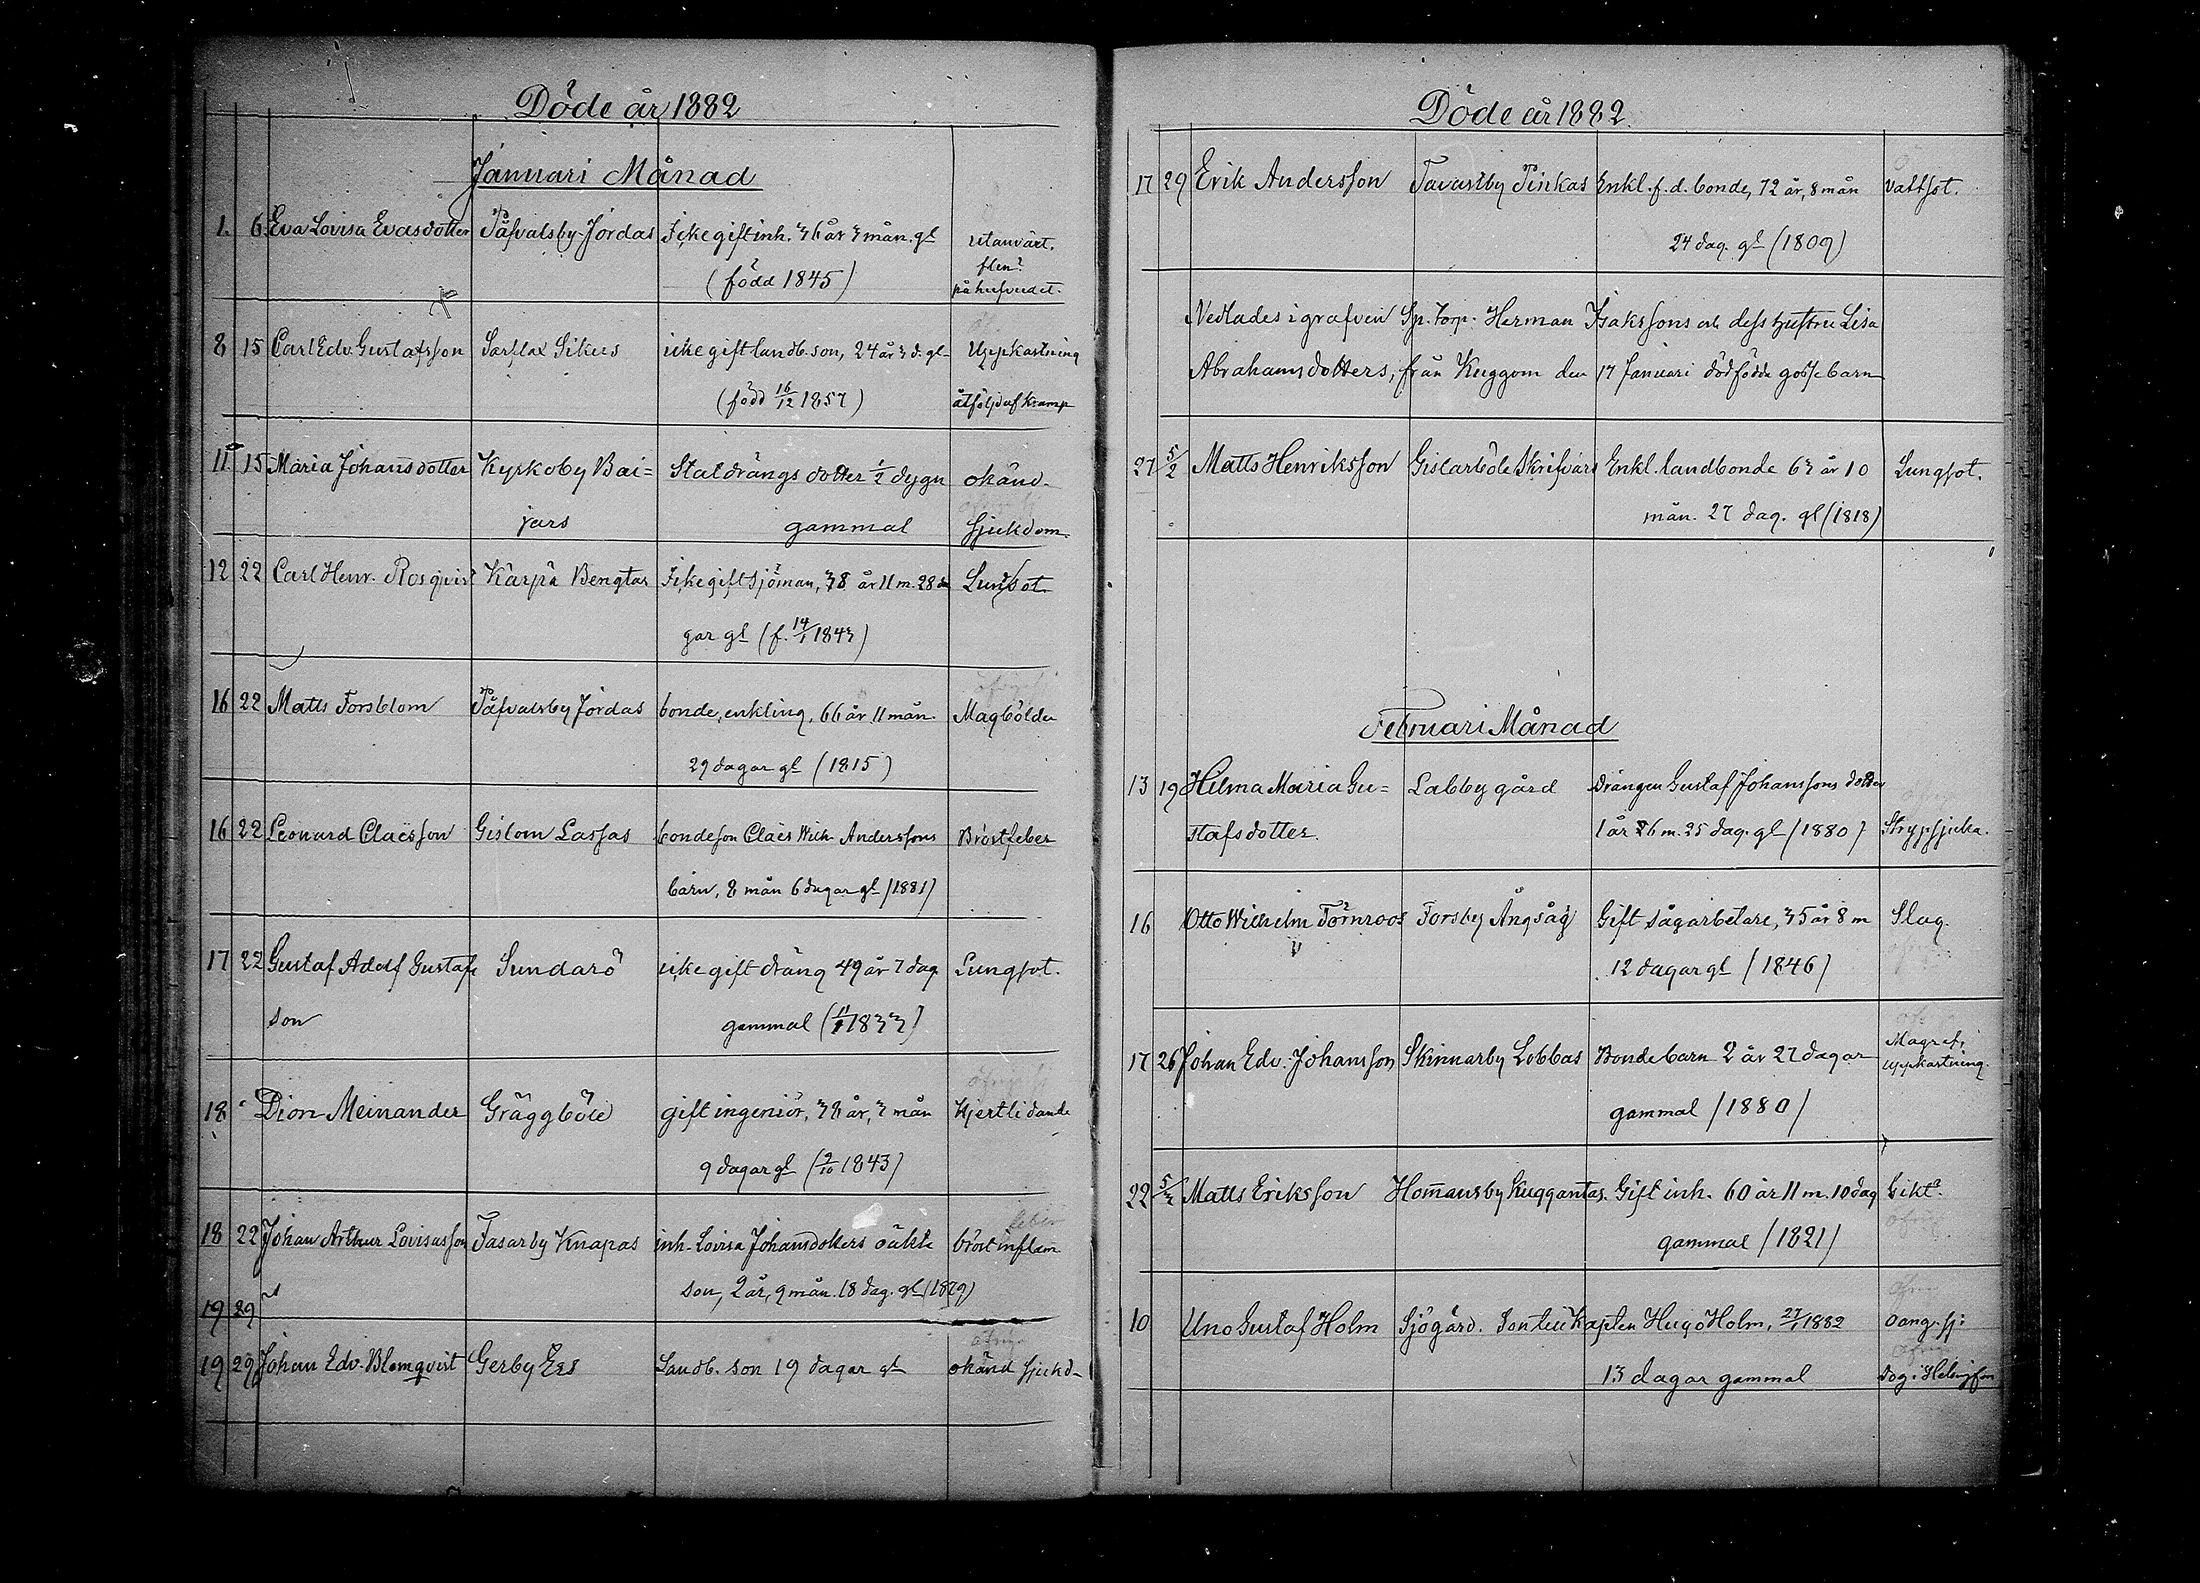 Döde år 1882
Januari Månad
1. 6 Eva Lovisa Evasdotter Påfvalsby Jordas Icke gift inh. 36 år 3 mån. gl utanvärt.
(född 1845) flen?
på hufvudet.
8 15 Carl Edv. Gustafsson Sarflax Sikers icke gift landb. son, 24 år 3 d. gl Uppkastning
(född 16/12 1857) åtföljd af Kramp
11 15 Maria Johansdotter Kyrkoby Bai= Statdrängs dotter 1/2 dygn okänd
jars gammal sjukdom.
12 22 Carl Henr. Rosqvist Kärpä Bengtas Icke gift sjöman, 38 år 11 m. 28 da
gar gl (f. 14/1 1843) Lungsot.
16 22 Matts Forsblom Påfvalsby Jordas bonde, enkling, 66 år 11 mån. Magbölder
29 dagar gl (1815)
16 22 Leonard Claësson Gislom Lassas bondeson Claës Wilh. Anderssons Bröstfeber
barn, 8 mån 6 dagar gl (1881)
17 22 Gustaf Adolf Gustafs Sundarö icke gift dräng 49 år 7 dag. Lungsot.
son gammal (11/1 1833)
18 Dion Meinander Gräggböle gift ingeniör, 38 år, 3 mån Hjertlidande
9 dagar gl (9/10 1843)
feber
18 22 Johan Arthur Lovisasson Tasarby Knapas inh. Lovisa Johansdotters oäkta bröstinflam
son, 2 år, 9 mån. 18 dag. gl (1879)
19 29
19 29 Johan Edv. Blomqvist Gerby Ers Landb. son 19 dagar gl okänd sjukd
Döde år 1882.
17 29 Erik Andersson Tavastby Pinkas Enkl. f.d. bonde, 72 år, 8 mån vattsot.
24 dag. gl (1809)
Nedlades i grafven Sp. torp. Herman Isakssons och dess hustru Lisa
Abrahamsdotters, från Kuggom den 17 Januari dödfödda gossebarn
27 5/2 Matts Henriksson Gislarböle Skrifvars Enkl. landbonde 63 år 10 Lungsot.
mån. 27 dag. gl (1818)
Februari Månad
13 19 Hilma Maria Gu= Labby gård Drängen Gustaf Johanssons dotter
stafsdotter 1 år 6 m. 25 dag. gl (1880) Strypsjuka.
16 Otto Wilhelm Törnroos Forsby Ångsåg Gift sågarbetare, 35 år 8 m Slag.
12 dagar gl (1846)
17 26 Johan Edv. Johansson Skinnarby Lobbas Bondebarn 2 år 27 dagar Magref,
uppkastning.
gammal (1880)
22 5/3 Matts Eriksson Homansby Kuggantas. Gift inh. 60 år 11 m. 10 dag Gikt.
gammal (1821)
10 Uno Gustaf Holm Sjögård. Son till Kapten Hugo Holm, 27/1 1882 oang. sj:
13 dagar gammal Dog i Helsingfors